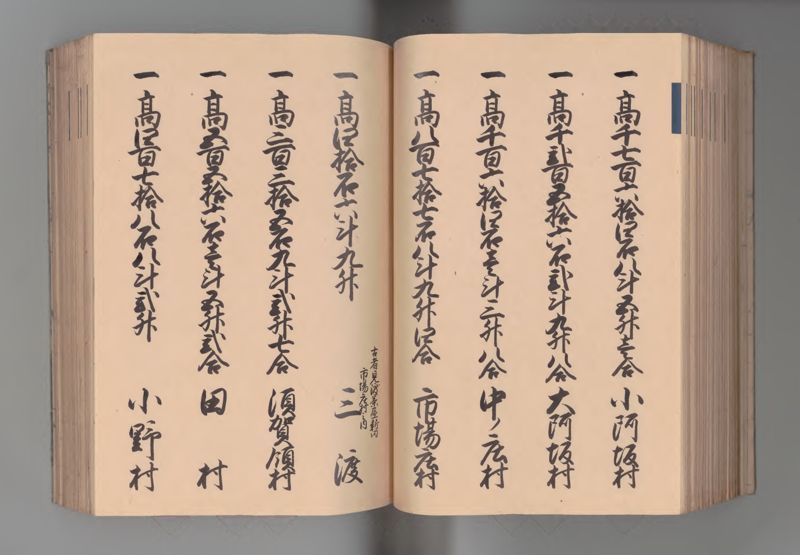 一高千七百六拾四石八斗五升壱合 小阿坂村
一高千弐百五拾六石弐斗九升八合 大阿坂村
一高千百六拾四石壱斗三升八合 中ノ庄村
一高八百七拾七石八斗九升四合 市場庄村
古者見渡
市場庄村之内
一高四拾石六斗九升 三渡
一高三百三拾五石九斗弐升七合 須賀領村
一高五百五拾六石壱斗五升弐合 田村
一高四百七拾八石八斗弐升 小野村